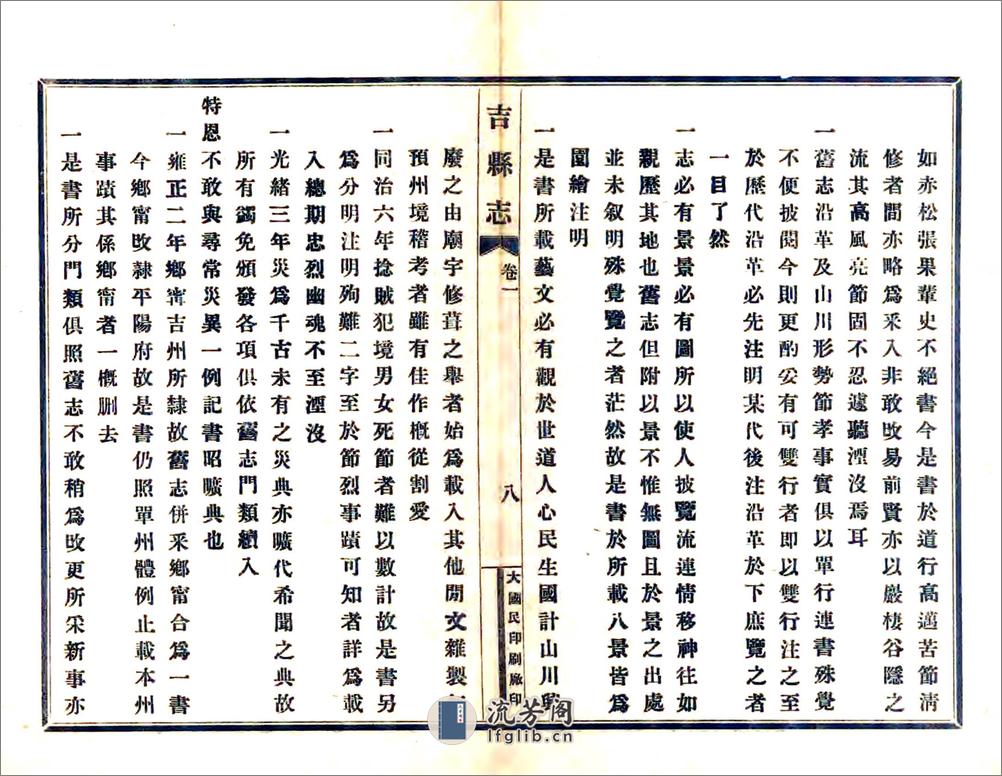 如赤松張果輩史不絕書今是書於道行高邁苦節淸
修者間亦略爲釆入非敢攺易前賢亦以巖棲谷隱之
流其高風亮節固不忍遽聽湮沒焉耳
一舊志沿革及山川形勢節孝事實俱以單行連書殊覺
不便披閱今則更酌妥有可雙行者即以雙行注之至
於歷代沿革必先注明某代後注沿革於下庶覽之者
一目了然
一志必有景景必有圖所以使人披覽流連情移神往如
親歷其地也舊志但附以景不惟無圖且於景之出處
並未叙明殊覺覽之者茫然故是書於所載八景皆爲
圖繪注明
一是書所載藝文必有觀於世道人心民生國計山川
吉縣志
卷一
八
大國民印刷廠印
廢之由廟宇修葺之舉者始爲載入其他閒文雜製
預州境稽考者雖有佳作槪從割愛
一同治六年捻賊犯境男女死節者難以數計故是書另
爲分明注明殉難二字至於節烈事蹟可知者詳爲載
入總期忠烈幽魂不至湮沒
一光緒三年災爲千古未有之災典亦曠代希聞之典故
所有蠲免頒發各項俱依舊志門類續入
特恩不敢與尋常災異一例記書昭曠典也
一雍正二年鄉甯吉州所隸故舊志併釆鄉甯合爲一書
今鄉甯攺隸平陽府故是書仍照單州體例止載本州
事蹟其係鄉甯者一槪刪去
一是書所分門類俱照舊志不敢稍爲攺更所采新事亦
流芳阁
lfglib.cn